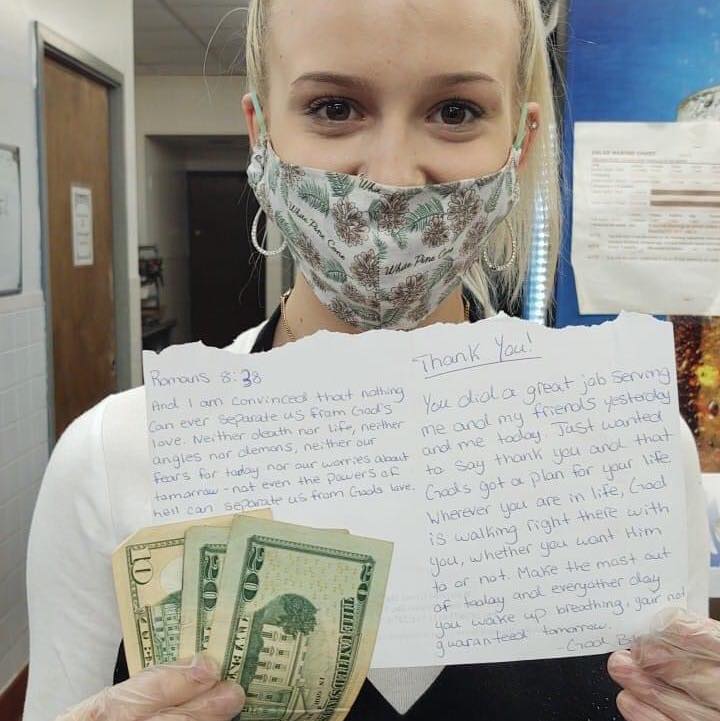 Romans 8:38
And I am convinced that nothing
can ever separate us from God's
love. Neither death nor life, neither
angles nor demons, neither our
fears for today nor our worries about
tomorrow - not even the powers of
hell can separate us from God's love.
Thank You!
You did a great job serving
me and my friends yesterday
and me today. Just wanted
to say thank you and that
God's got a plan for your life
Wherever you are in life, God
is walking right there with
you, whether you want Him
to or not. Make the most out
of today and everyother day
you wake up breathing, your not
guaranteed tomorrow.
- God
White Pine Cone
White Pine Cone
White
10
20
20
THE UNITED STATES